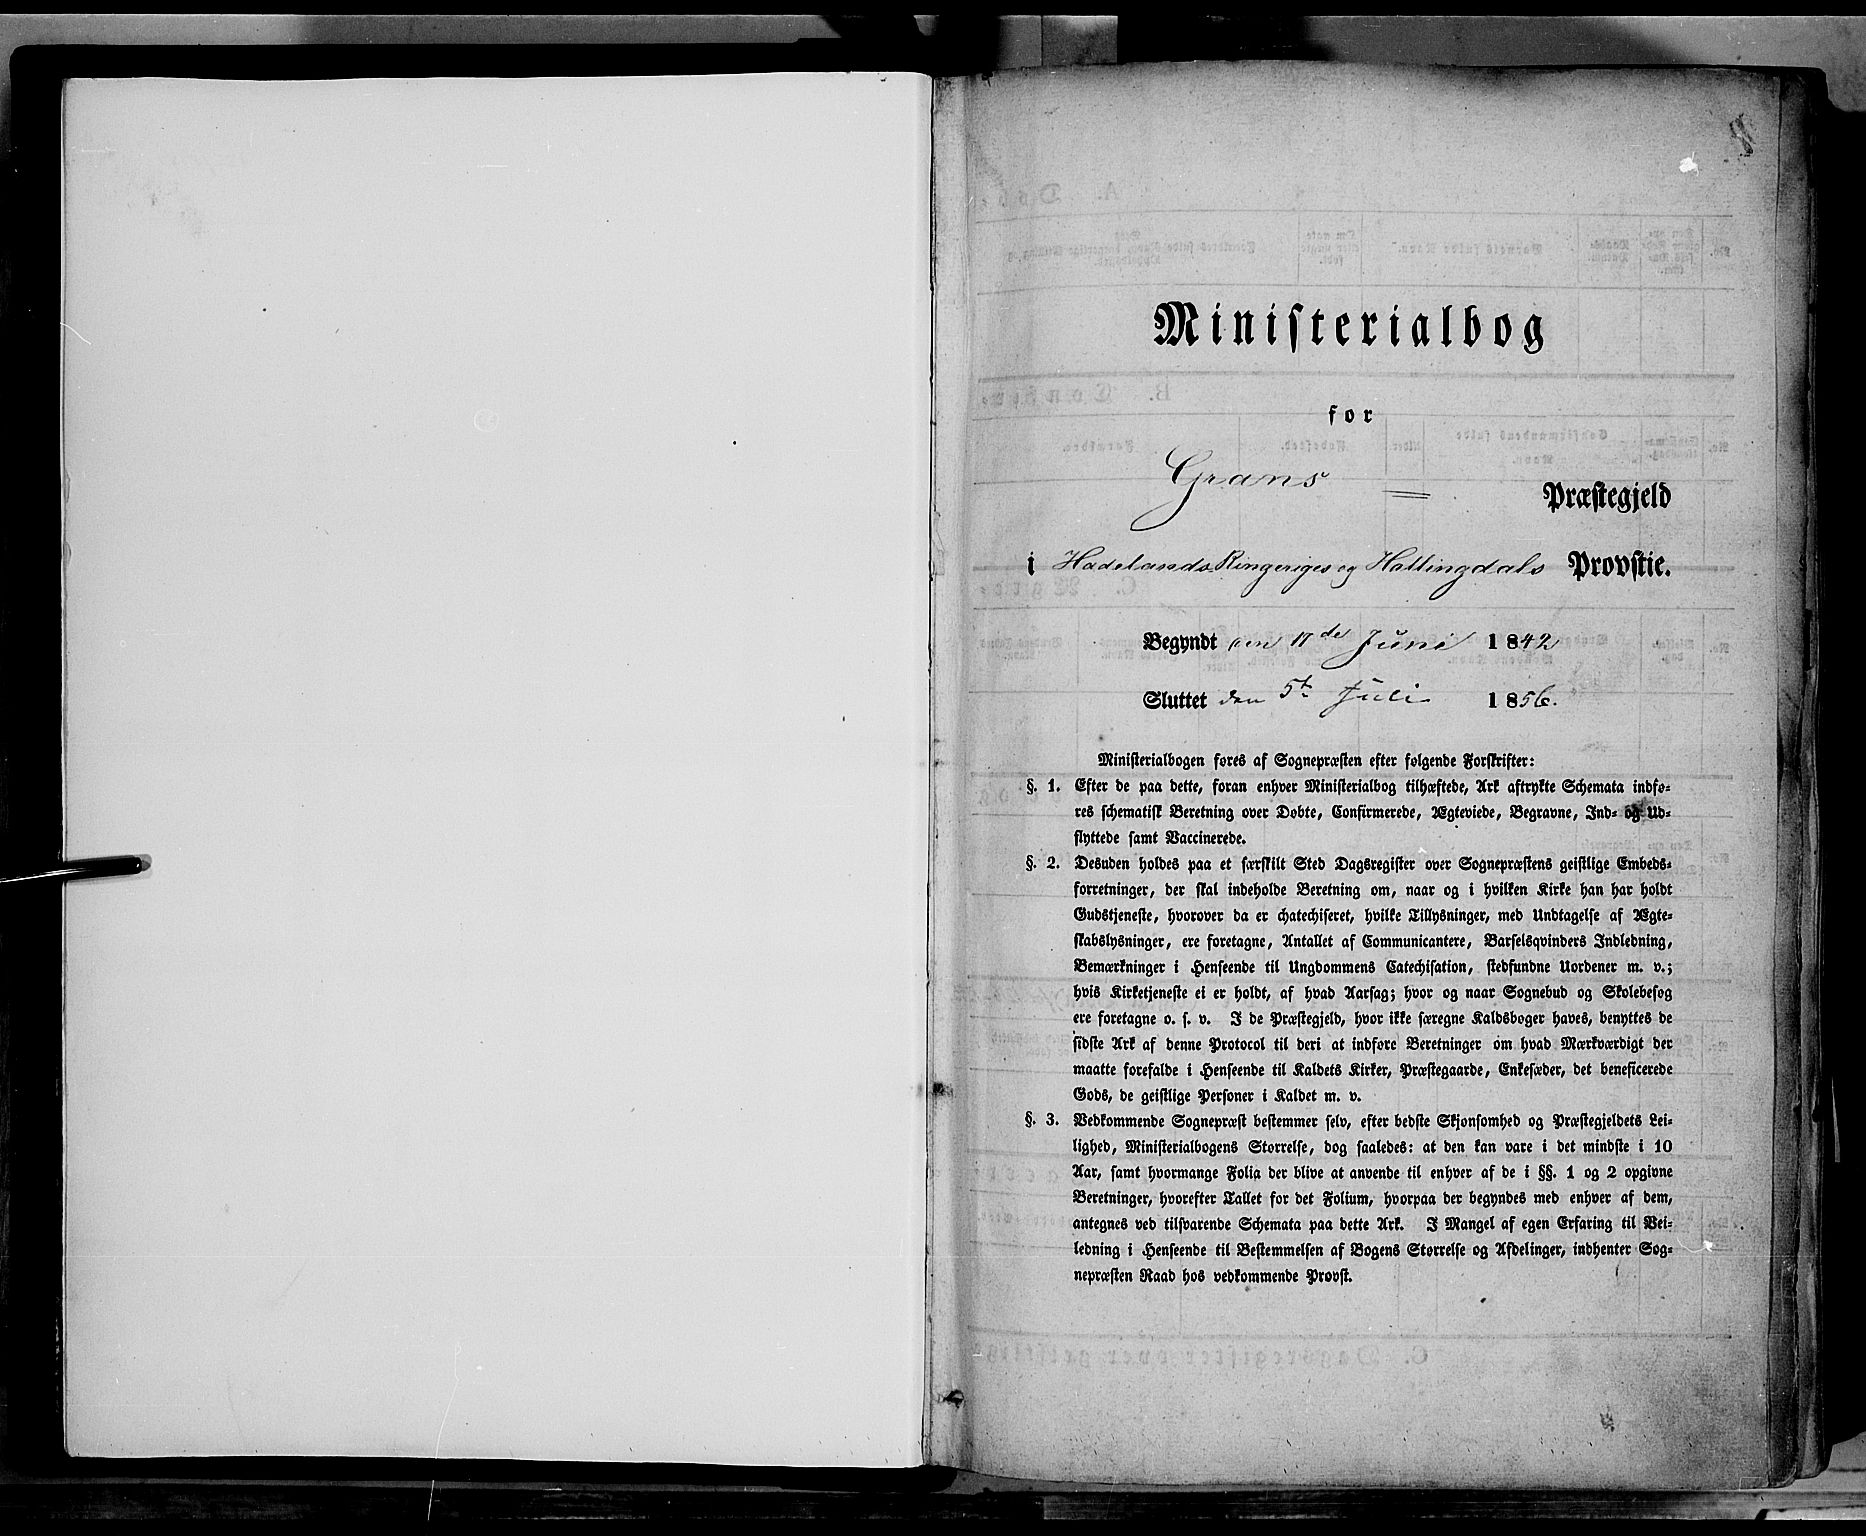 Ministerialbog
for
Grans Præstegjeld
i Hadelands Ringeriges og Hallingdals Provstie.
Begyndt den 17de Juni 1842
Sluttet den 5te Juli 1856.
Ministerialbogen føres af Sognepræsten efter følgende Forskrifter:
§. 1. Efter de paa dette, foran enhver Ministerialbog tilhæftede, Ark aftrykte Schemata indfø-
res schematisk Beretning over Døbte, Confirmerede, Ægteviede, Begravne, Ind- og Ud-
flyttede samt Vaccinerede.
§. 2. Desuden holdes paa et særskilt Sted Dagsregister over Sognepræstens geistlige Embeds-
forretninger, der skal indeholde Beretning om, naar og i hvilken Kirke han har holdt
Gudstjeneste, hvorover da er chatechiseret, hvilke Tillysninger, med Undtagelse af Ægte-
skabslysninger, ere foretagne, Antallet af Communicantere, Barselqvinders Indledning,
Bemærkninger i Henseende til Ungdommens Catechisation, stedfundne Uordener m. v.;
hvis Kirketjeneste ei er holdt, af hvad Aarsag; hvor og naar Sognebud og Skolebesøg
ere foretagne o. s. v. I de Præstegjeld, hvor ikke særegne Kaldsbøger haves, benyttes de
sidste Ark af denne Protocol til deri at indføre Beretninger om hvad Mærkværdigt der
maatte forefalde i Henseende til Kaldets Kirker, Præstegaarde, Enkesæder, det beneficerede
Gods, de geistlige Personer i Kaldet m. v.
§. 3. Vedkommende Sognepræst bestemmer selv, efter bedste Skjønsomhed og Præstegjeldets Lei-
lighed, Ministerialbogens Størrelse, dog saaledes: at den kan vare i det mindste i 10
Aar, samt hvormange Folia der blive at anvende til enhver af de i §§. 1 og 2 opgivne
Beretninger, hvorefter Tallet for det Folium, hvorpaa der begyndes med enhver af dem,
antegnes ved tilsvarende Schemata paa dette Ark. I Mangel af egen Erfaring til Vei-
ledning i Henseende til Bestemmelsen af Bogens Størrelse og Afdelinger, indhenter Sog-
nepræsten Raad hos vedkommende Provst.